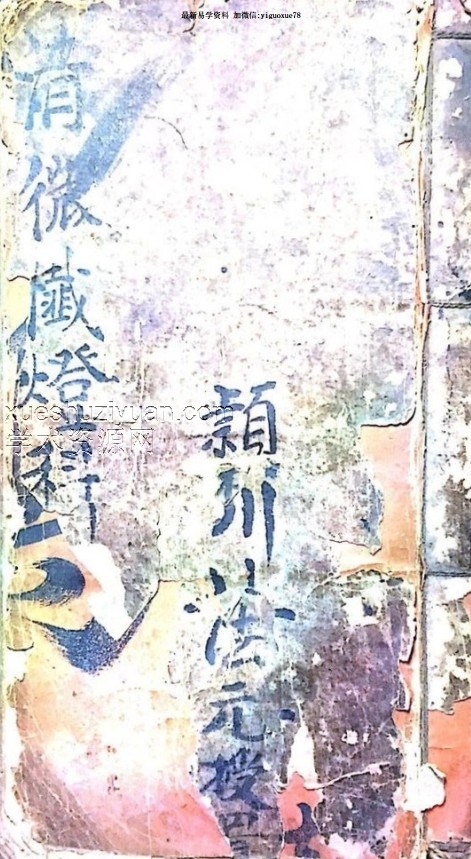 最新易学资料 加微信:yiguoxue78
清微懺燈科
xueshuziyuan.com
学术资源网
穎川法元授